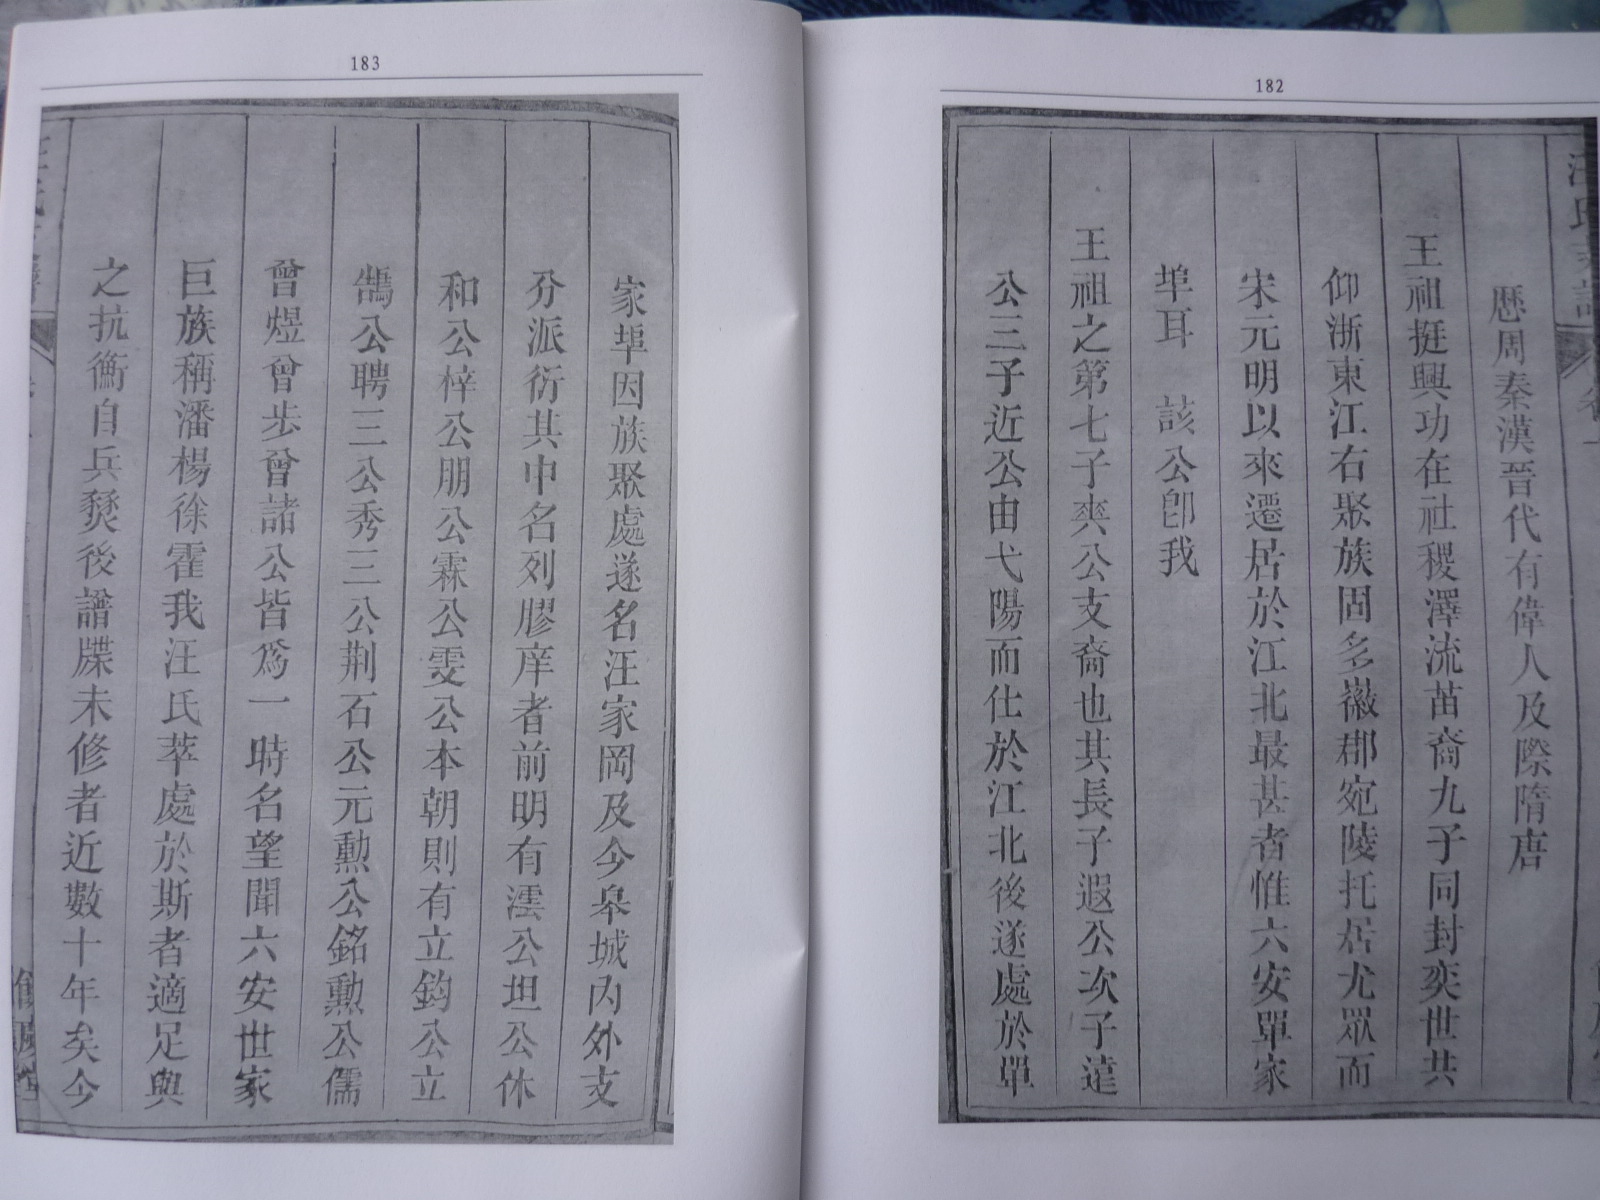 182
歷周秦漢晉代有偉人及際隋唐
王祖挺興功在社稷澤流苗裔九子同封奕世共
仰浙東江右聚族固多徽郡宛陵托居尤眾而
宋元明以來遷居於江北最甚者惟六安單家
埠耳 該公卽我
王祖之第七子爽公支裔也其長子遐公次子達
公三子近公由弋陽而仕於江北後遂處於單
183
家埠因族聚處遂名汪家岡及今皋城內外支
分派衍其中名列膠庠者前明有澐公坦公休
和公梓公朋公霖公雯公本朝則有立鈞公立
鵠公聘三公秀三公荆石公元勲公銘勲公儒
曾煜曾步曾諸公皆爲一時名望聞六安世家
巨族稱潘楊徐霍我汪氏萃處於斯者適足與
之抗衡自兵燹後譜牒未修者近數十年矣今